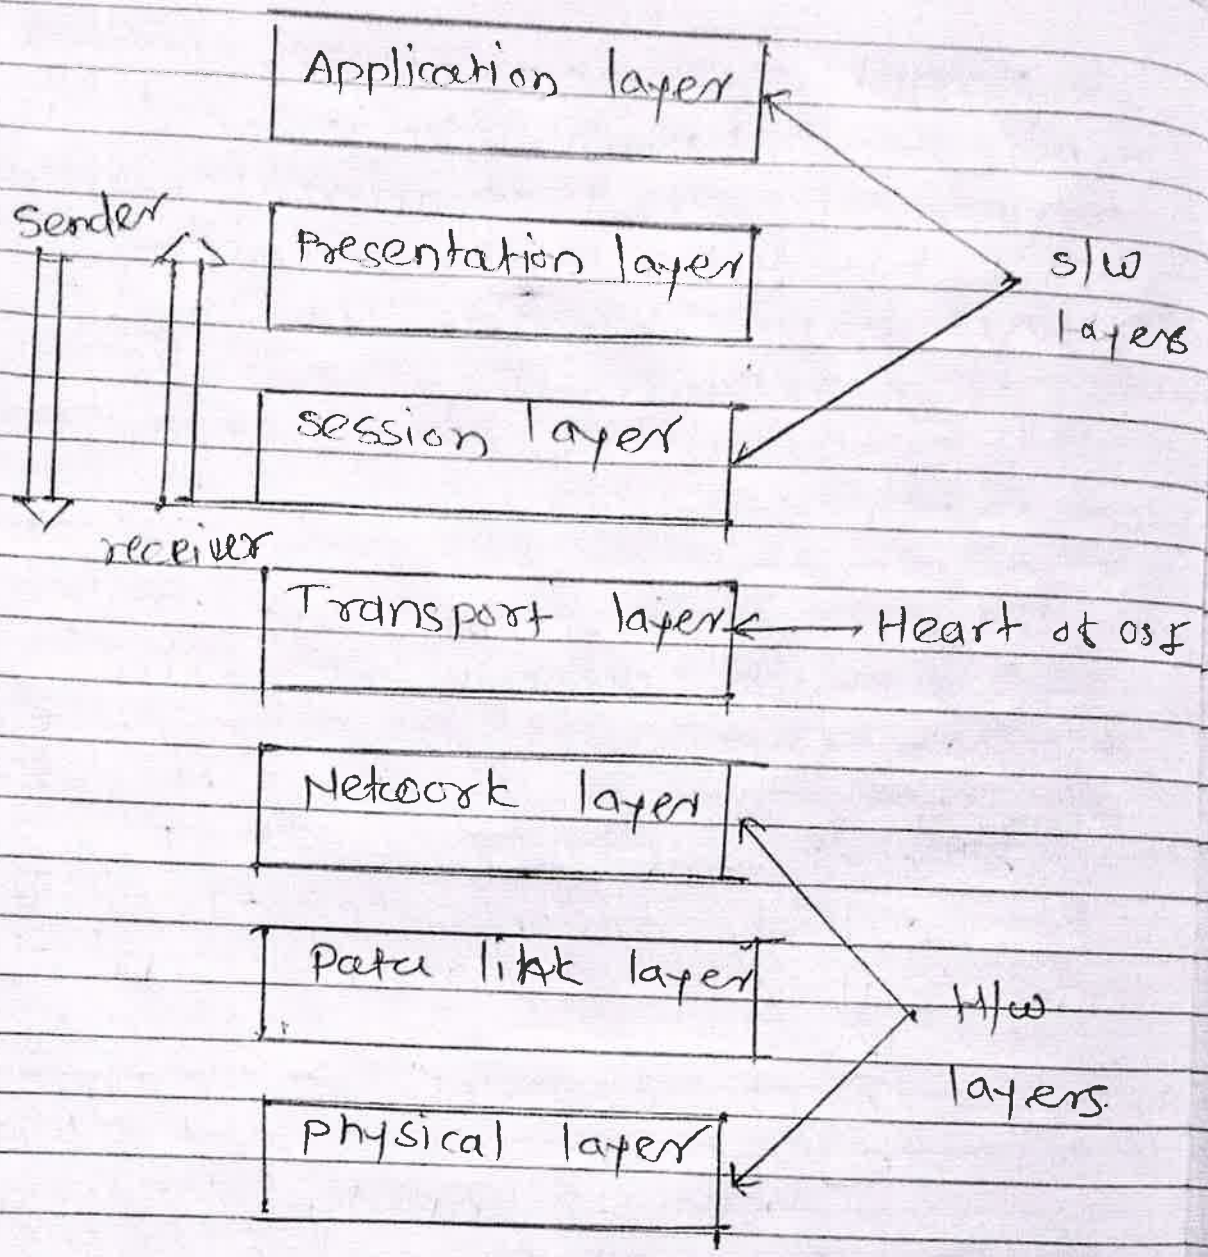 Application layer
Sender
Presentation layer
s/w
layers
session layer
receiver
Transport layer
Heart of OSI
Network layer
Data link layer
H/w
layers.
physical layer